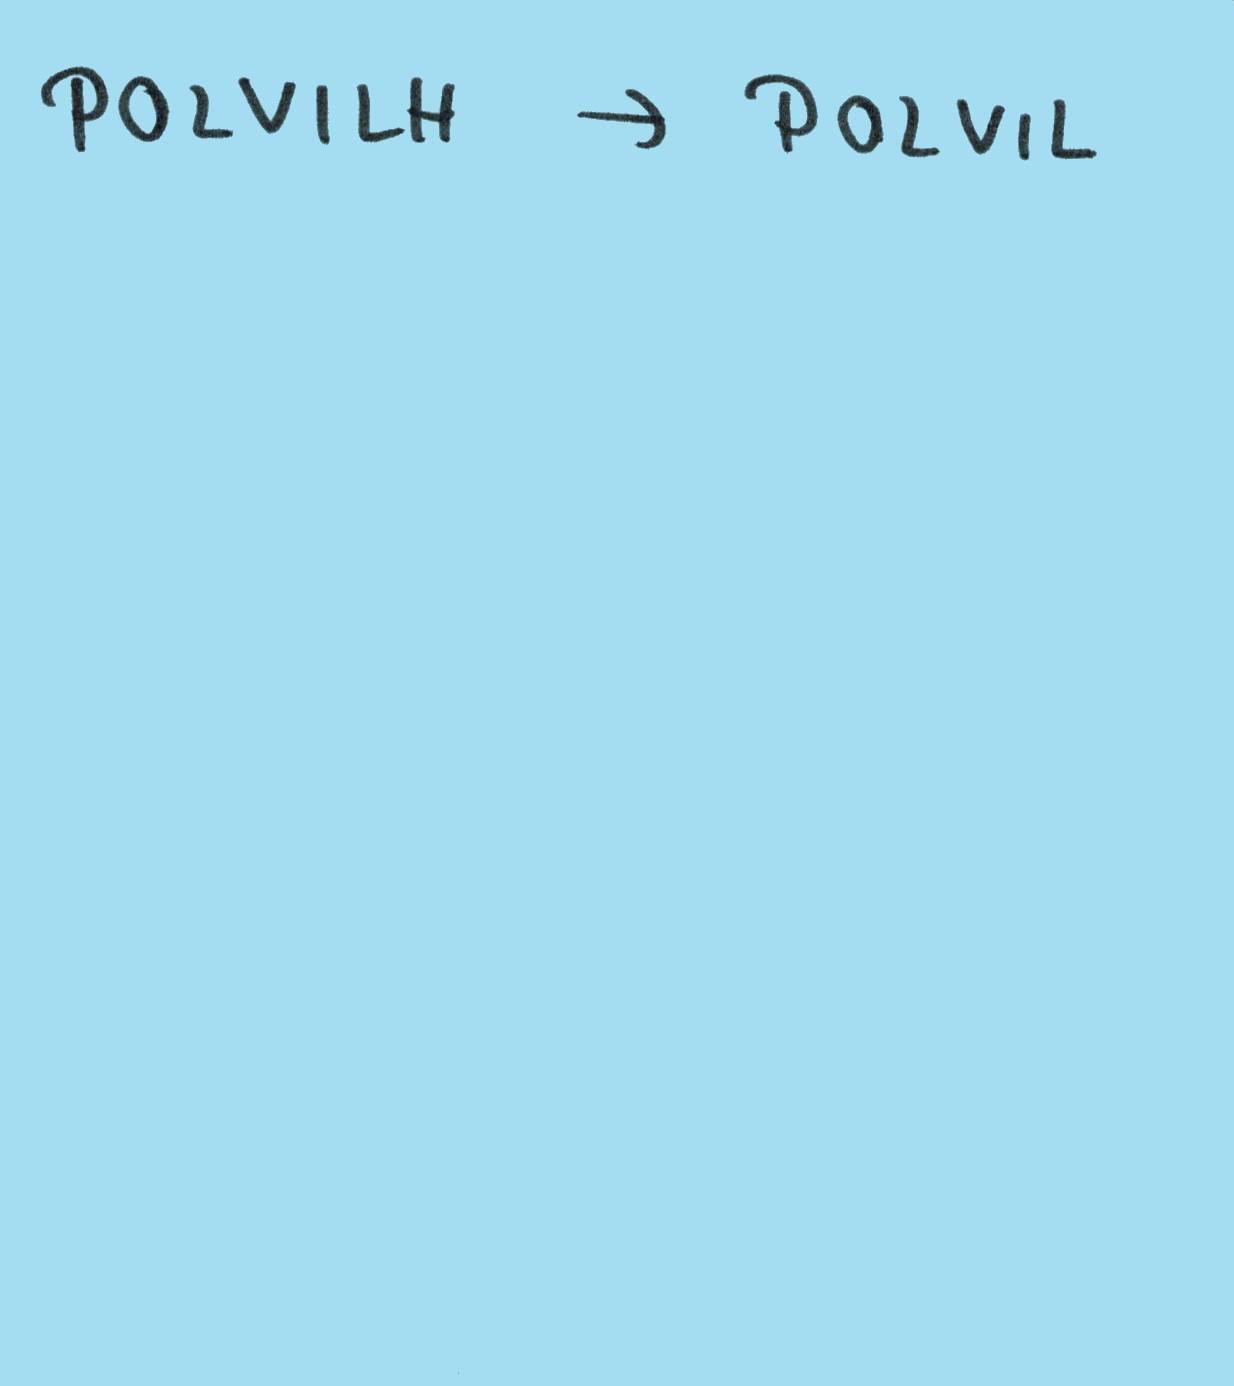 POLVILH → POLVIL